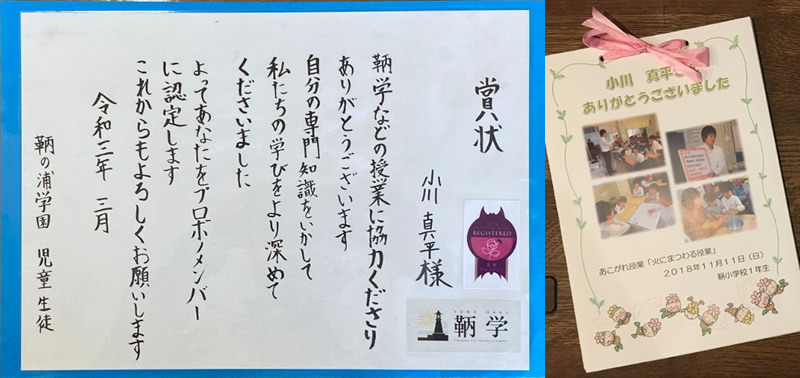 賞状
小川 真平 様
鞆学などの授業に協力くださり
ありがとうございます
自分の専門知識をいかして
私たちの学びをより深めて
くださいました
よってあなたをプロボノメンバー
に認定します
これからもよろしくお願いします
令和三年 三月
鞆の浦学園 児童生徒
REGISTERED
鞆学
小川 真平さん
ありがとうございました
あこがれ授業「火にまつわる授業」
2018年11月11日(日)
鞆小学校1年生